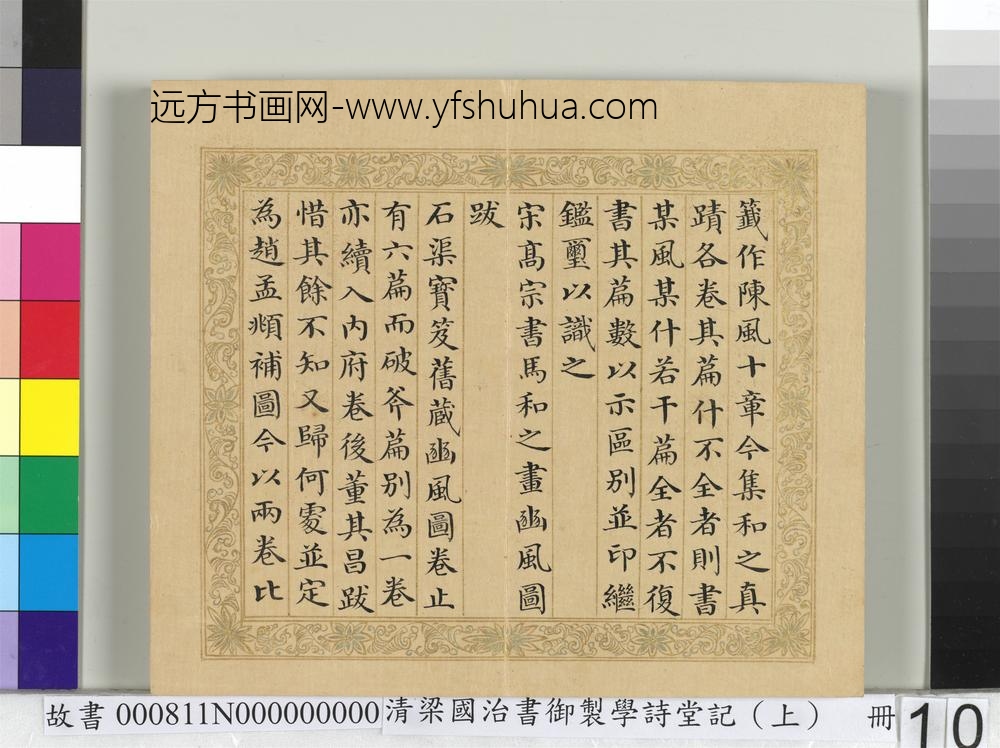 远方书画网-www.yfshuhua.com
籤作陳風十章今集和之真
蹟各卷其篇什不全者則書
某風某什若干篇全者不復
書其篇數以示區別並印繼
鑑璽以識之
宋髙宗書馬和之畫豳風圖
跋
石渠寶笈舊蔵豳風圖卷止
有六篇而破斧篇別為一卷
亦續入內府卷後董其昌跋
惜其餘不知又歸何處並定
為趙孟頫補圖今以兩卷比
故書 000811N000000000 清梁國治書御製學詩堂記（上） 冊 10